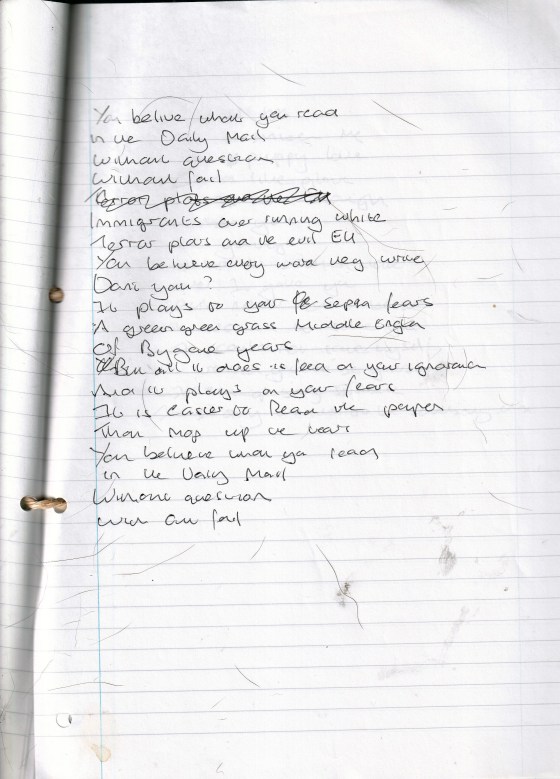 You belive what you read
in the Daily Mail
without question
without fail
Terror plots and the EU
Immigrants over running white
Terror plots and the evil EU
You believe every word they write
Don't you?
It plays to your sepia fears
A green green grass Middle Englan
Of Bygone years
But all it does is feed on your ignorance
And it plays on your fears
It is easier to Read the paper
Than mop up the tears
You believe what you read
in the Daily Mail
Without question
with out fail